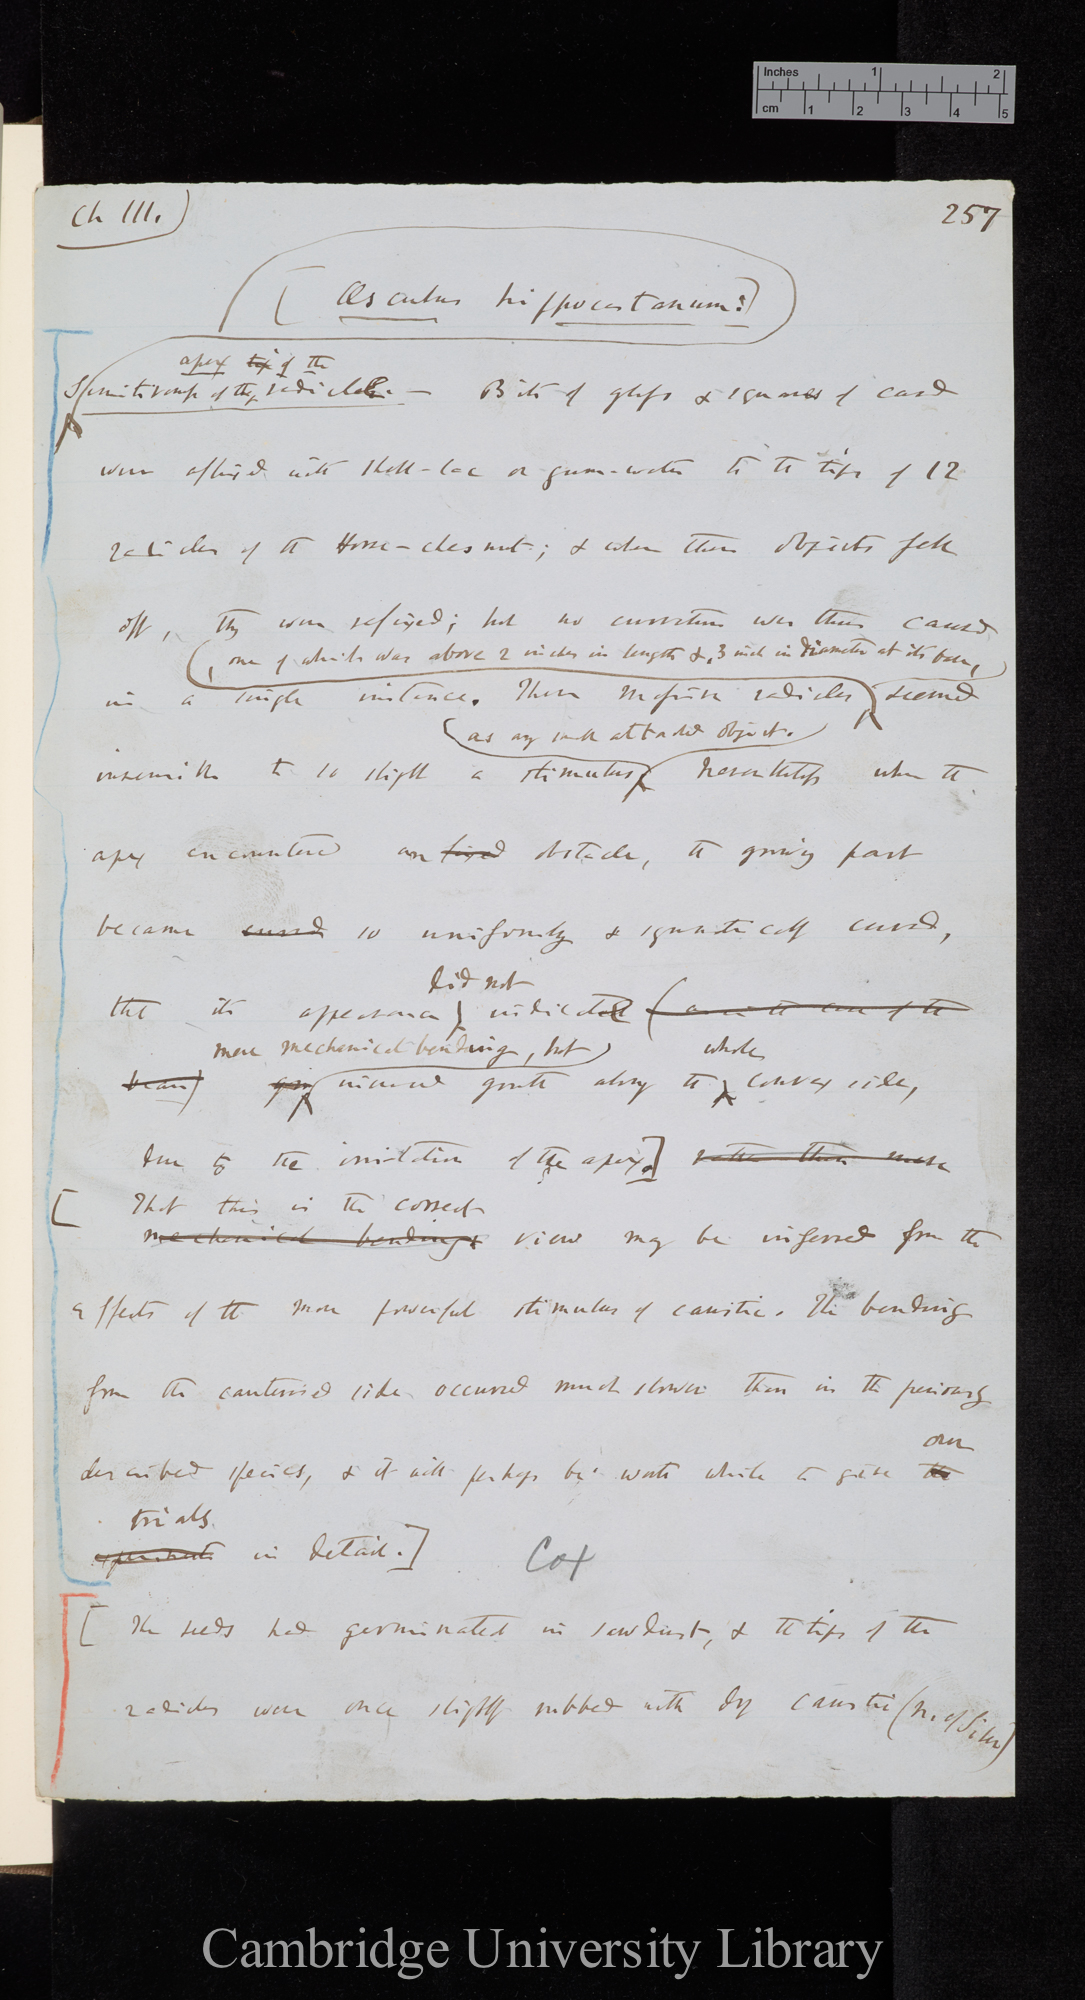 Inches 1 2
cm 1 2 3 4 5
Ch III.
257
[Æsculus hippocastanum:]
apex tip of the
Sensitiveness of the radicle. — Bits of glass & squares of card
were affixed with shell-lac or gum-water to the tips of 12
radicles of the Horse-chesnut; & when these objects fell
off, they were refixed; but no curvature was thus caused
, one of which was above 2 inches in length & .3 inch in diameter at its base,
in a single instance. These massive radicles seemed
as any small attached object.
insensible to so slight a stimulus Nevertheless when the
apex encountered an fixed obstacle, the growing part
became curved so uniformly & symmetrically curved,
did not
that its appearance indicated (as in the case of the
mere mechanical bending, but whole
bean) increased growth along the convex side,
due to the irritation of the apex.] rather than mere
[ That this is the correct
mechanical bending view may be inferred from the
effects of the more powerful stimulus of caustic. The bending
from the cauterised side occurred much slower than in the previously
described species, & it will perhaps be worth while to give the
our
trials
experiments in detail.]
Cot
[ The seeds had germinated in sawdust, & the tips of the
radicles were once slightly rubbed with dry caustic (n. of Silver)
Cambridge University Library